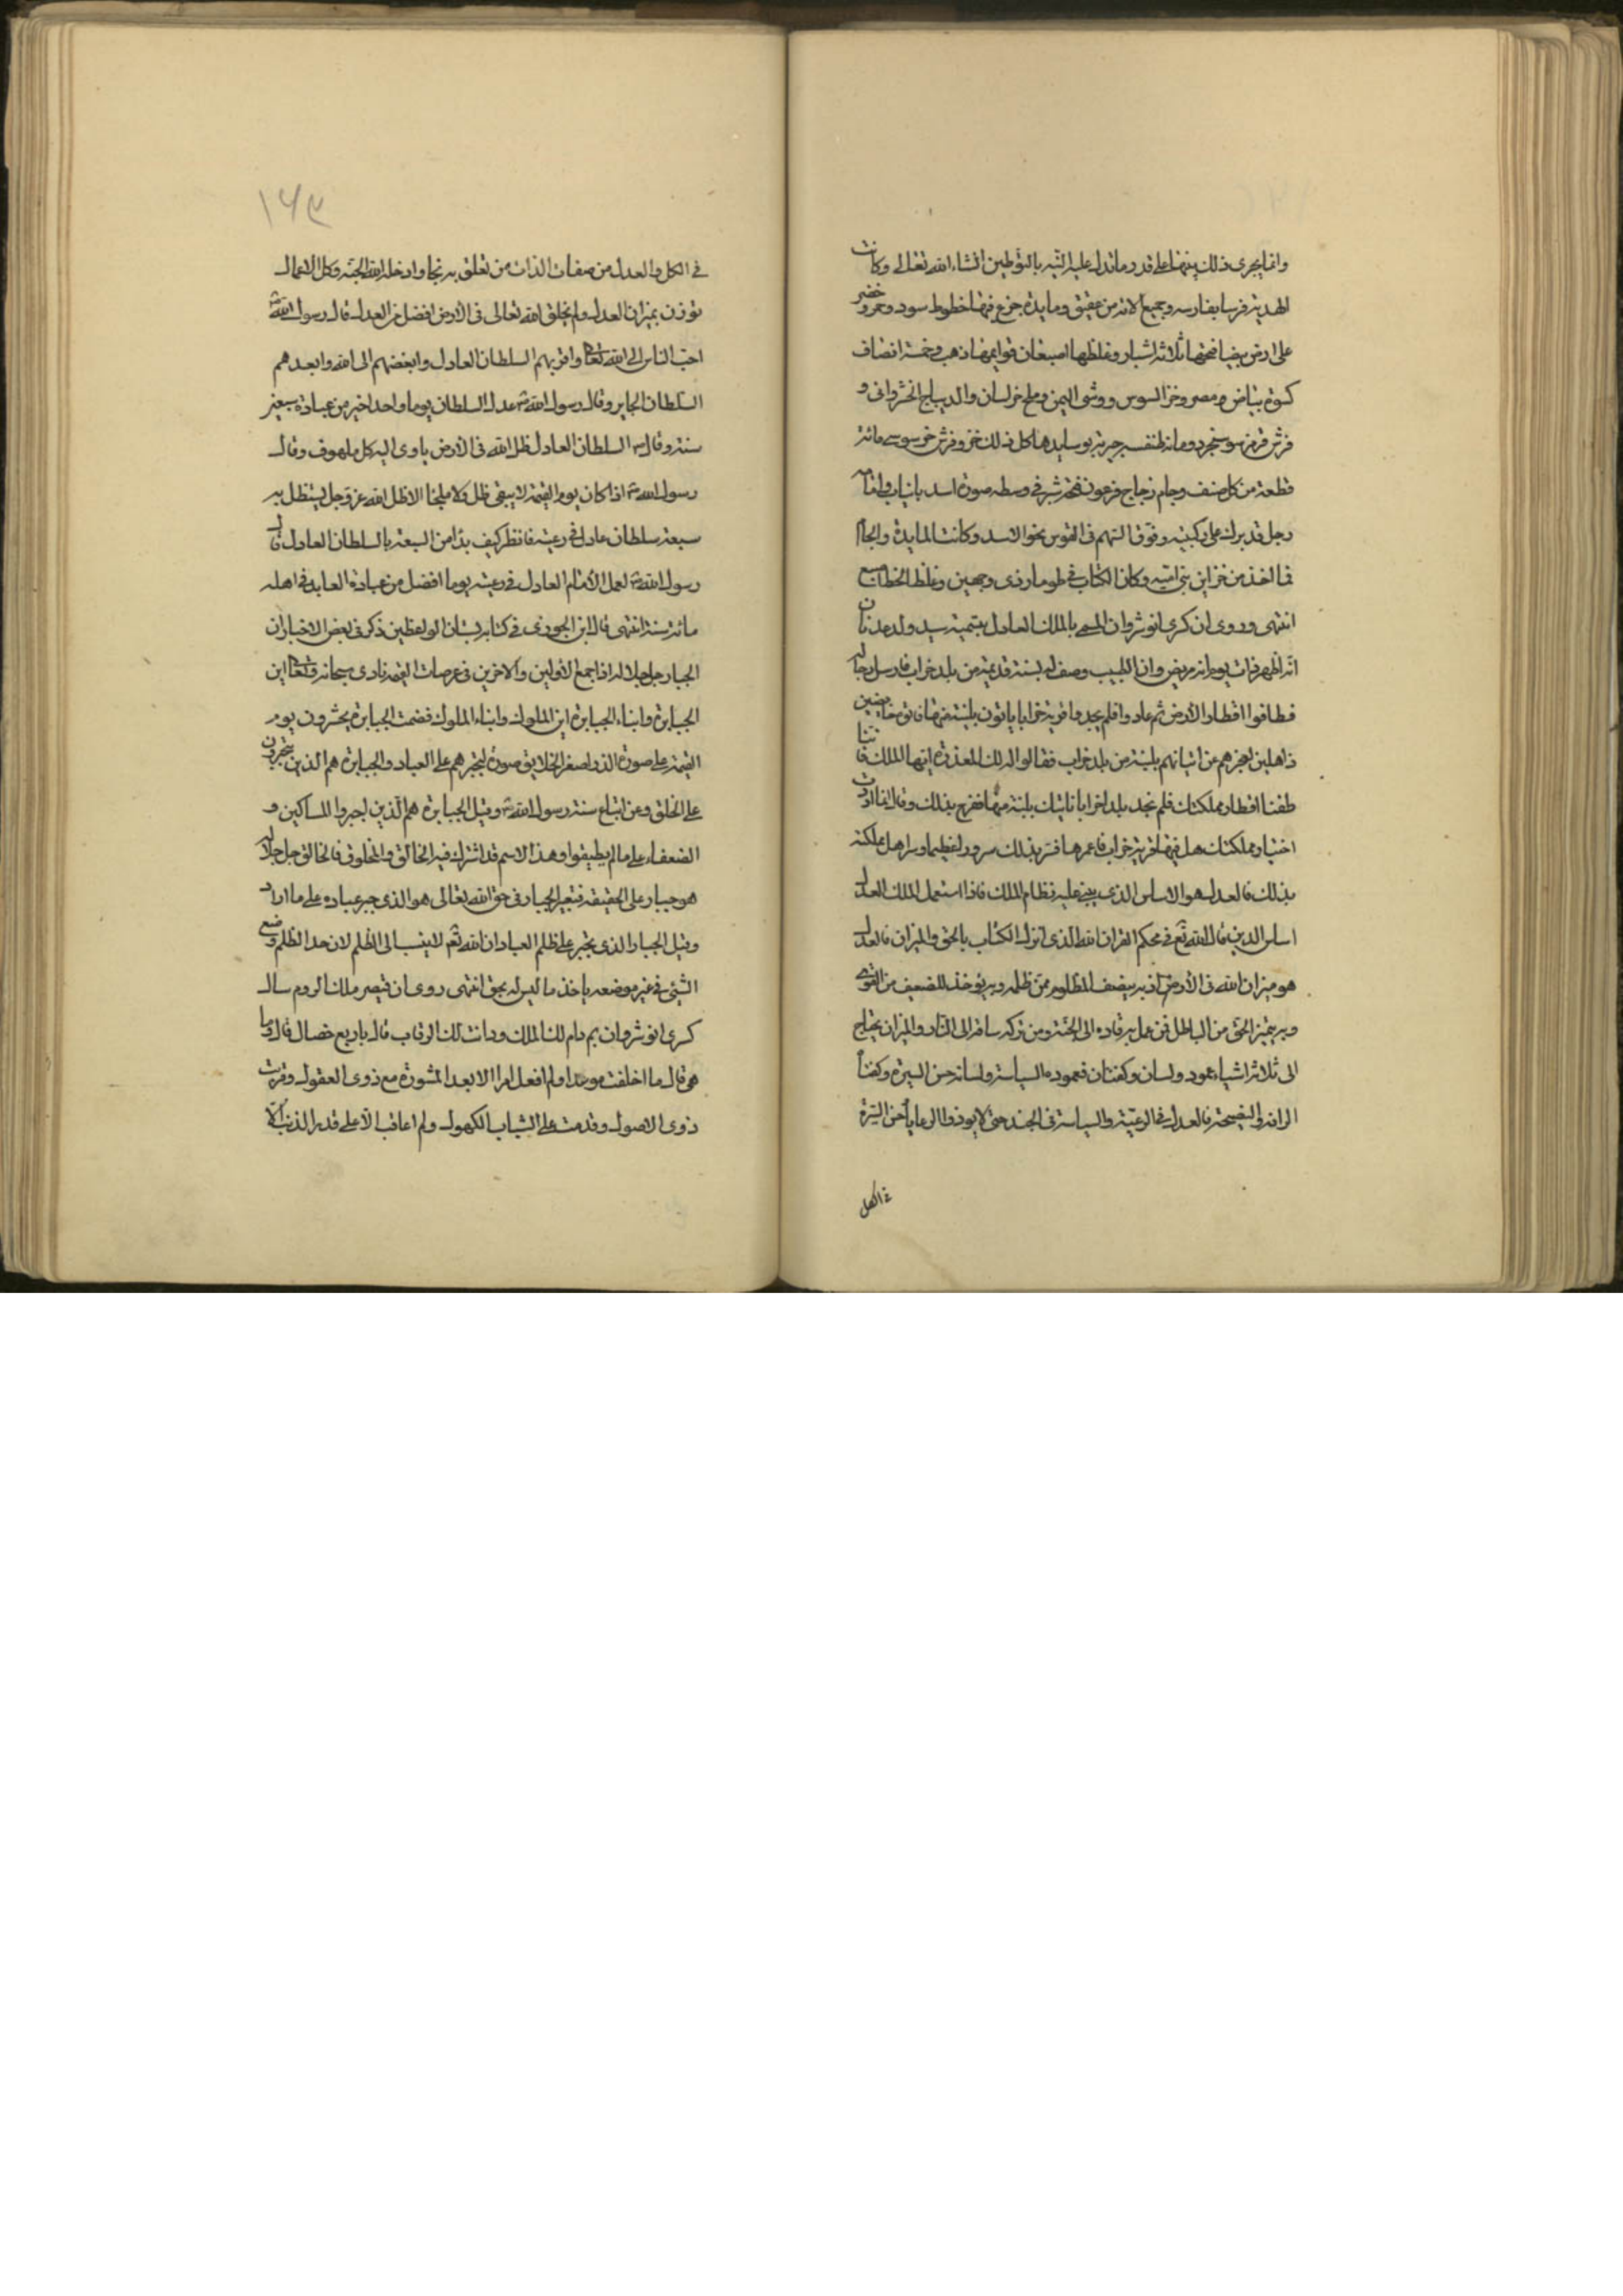 وانما يجرى ذلك بينهما على قدر ما تدل عليه النية بالتوطين انشاء الله تعالى وكانت
الهدية فرسا بفارسه وجميع الاته من عقيق ومايدة جزع فيها خطوط سود وحمر وخضر
على ارض بيضا فتحها ثلاثة اشبار وغلظها اصبعان قوايمها ذهب وخمسة اصناف
كسوة بياض مصر وخز السوس ووشى اليمن وملح خراسان والديباج الخسروانى و
فرش قرمز سوسنجرد ومائة طنفسه حيريه بوسايدها كل ذلك خز وفرش خز سوسى مائة
قطعة من كل صنف وجام زجاج فرعونى فتحه شبر فى وسطه صورة اسد بانياب وامامه
رجل قد برك على ركبتيه وفوق السهم فى القوس نحو الاسد وكانت المايدة والجام
مما اخذ من خزاين بنى اميه وكان الكتاب فى طومار ذى وجهين وغلظ الخط اصبع
انتهى وروى ان كسرى انوشروان المسمى بالملك العادل بتسمية سيد ولد عدنان
انه اظهر ذات يوم انه مريض وان الطبيب وصف له لبنة قديمة من بلد خراب فارسل رجاله
فطافوا اقطار الارض ثم عادوا فلم يجدوا قرية خرابا ياتون بلبنة منها فاتوه خاضعين
ذاهلين لعجزهم عن اتيانهم بلبنة من بلد خراب فقالوا له لك المعذرة ايها الملك فاننا
طفنا اقطار مملكتك فلم نجد بلدا خرابا ناتيك بلبنة منها ففرح بذلك وقال انما اردت
اختبار مملكتك هل فيها قرية خراب فاعمرها فسر بذلك سرورا عظيما وسر اهل مملكته
بذلك فالعدل هو الاساس الذى يبنى عليه نظام الملك فاذا استعمل الملك العدل
اساس الدين قال الله تع فى محكم القران الله الذى انزل الكتاب بالحق والميزان فالعدل
هو ميزان الله فى الارض اذ به ينصف المظلوم ممن ظلمه وبه يؤخذ للضعيف من القوى
وبه يتميز الحق من الباطل فمن عمل به قاده الى الجنة ومن تركه ساقه الى النار والميزان يحتاج
الى ثلاثة اشياء عمود ولسان وكفتان فعموده السياسة ولسانه حسن السيرة وكفتاه
الرافة والنصيحة فالعدل فى الرعية والسياسة فى الجند حتى لا يوذوا الرعايا وحسن السيرة
فى الكل
١٦٣
فى الكل والعدل من صفات الذات من تعلق به نجا وادخله الله الجنة وكل الاعمال
توزن بميزان العدل ولم يخلق الله تعالى فى الارض افضل من العدل قال رسول الله
احب الناس الى الله تعالى واقربهم السلطان العادل وابغضهم الى الله وابعدهم
السلطان الجاير وقال رسول الله عدل السلطان يوما واحدا خير من عبادة سبعين
سنة وقال السلطان العادل ظل الله فى الارض ياوى اليه كل ملهوف وقال
رسول الله اذا كان يوم القيمة لا يبقى ظل ولا ملجا الا ظل الله عز وجل يستظل به
سبعة سلطان عادل فى رعيته فانظر كيف بدا من السبعة بالسلطان العادل قال
رسول الله لعمل الامام العادل فى رعيته يوما افضل من عبادة العابد فى اهله
مائة سنة انتهى قال ابن الجوزى فى كتابه بستان الواعظين ذكر فى بعض الاخبار ان
الجبار جل جلاله اذا جمع الاولين والاخرين فى عرصات القيمة نادى سبحانه وتعالى اين
الجبابرة وابناء الجبابرة اين الملوك وابناء الملوك فضمت الجبابرة يحشرون يوم
القيمة على صورة الذر اصغر الخلايق صورة لتجبرهم على العباد والجبابرة هم الذين يتجبرون
على الخلق وعن اتباع سنة رسول الله وقيل الجبابرة هم الذين اجبروا المساكين و
الضعفاء على ما لم يطيقوا وهذا الاسم قد اشترك فيه الخالق والمخلوق فالخالق جل جلاله
هو جبار على الحقيقة فتعبير الجبار فى حق الله تعالى هو الذى جبر عباده على ما اراد
وقيل الجبار الذى يجبر على ظلم العباد ان الله تع لا ينسب الى الظلم لان حد الظلم وضع
الشىء فى غير موضعه ياخذ ما ليس له بحق انتهى روى ان قيصر ملك الروم سال
كسرى انوشروان بم دام لك الملك ودانت لك الرقاب قال باربع خصال قال وما
هى قال ما اخلفت موعدا ولم افعل امرا الا بعد المشورة مع ذوى العقول وقربت
ذوى الاصول وقدمت على الشباب الكهول ولم اعاقب الا على قدر الذنب